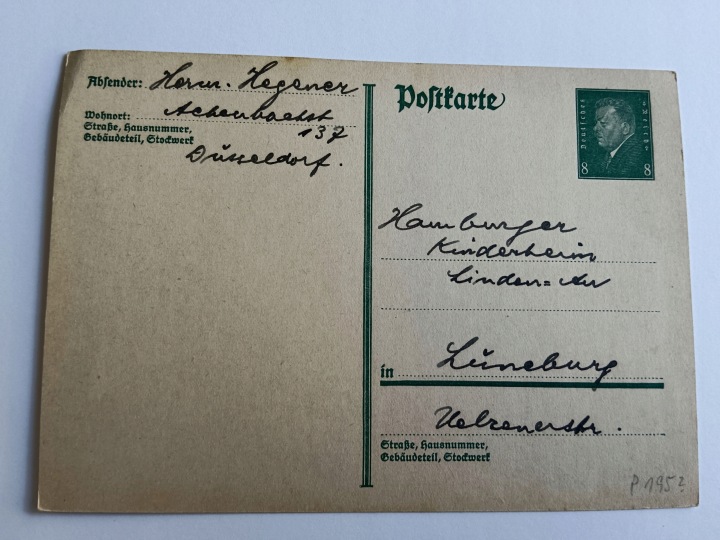 Absender: Herm. Hegener
Wohnort: Achenbachst
Straße, Hausnummer, 137
Gebäudeteil, Stockwerk
Düsseldorf.
Postkarte
Deutsches Reich
8 8
Hamburger
Kinderheim
Linden=Au
in Lüneburg
Uelzenerstr.
Straße, Hausnummer,
Gebäudeteil, Stockwerk
P 195 ?